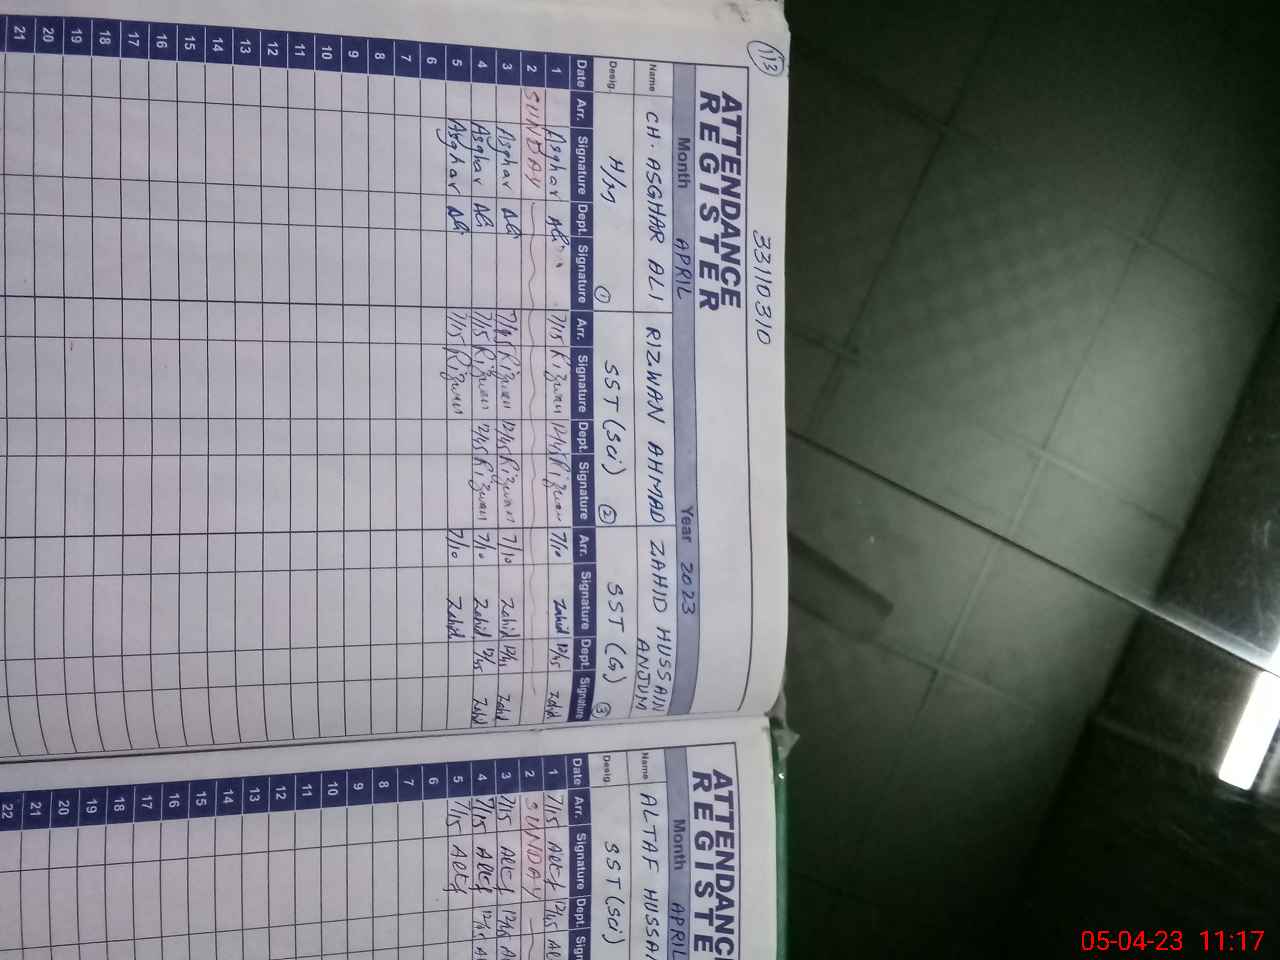 113
33110310
ATTENDANCE
REGISTER
Month APRIL Year 2023
Name CH. ASGHAR ALI RIZWAN AHMAD ZAHID HUSSAIN ANJUM
Desig. H/M 1 SST (Sci) 2 SST (G) 3
Date Arr. Signature Dept. Signature Arr. Signature Dept. Signature Arr. Signature Dept. Signature
1 Asghar Ali 7/15 Rizwan 12/45 Rizwan 7/10 Zahid 12/45 Zahid
2 SUNDAY
3 Asghar Ali 7/15 Rizwan 12/45 Rizwan 7/10 Zahid 12/45 Zahid
4 Asghar Ali 7/15 Rizwan 12/45 Rizwan 7/10 Zahid 12/45 Zahid
5 Asghar Ali 7/15 Rizwan 7/10 Zahid
6
7
8
9
10
11
12
13
14
15
16
17
18
19
20
21
ATTENDANC
REGISTE
Month APRIL
Name ALTAF HUSSAI
Desig. SST (Sci)
Date Arr. Signature Dept. Sign
1 7/15 Altaf 12/45
2 SUNDAY
3 7/15 Altaf 12/45
4 7/15 Altaf 12/45
5 7/15 Altaf
6
7
8
9
10
11
12
13
14
15
16
17
18
19
20
21
22
05-04-23 11:17